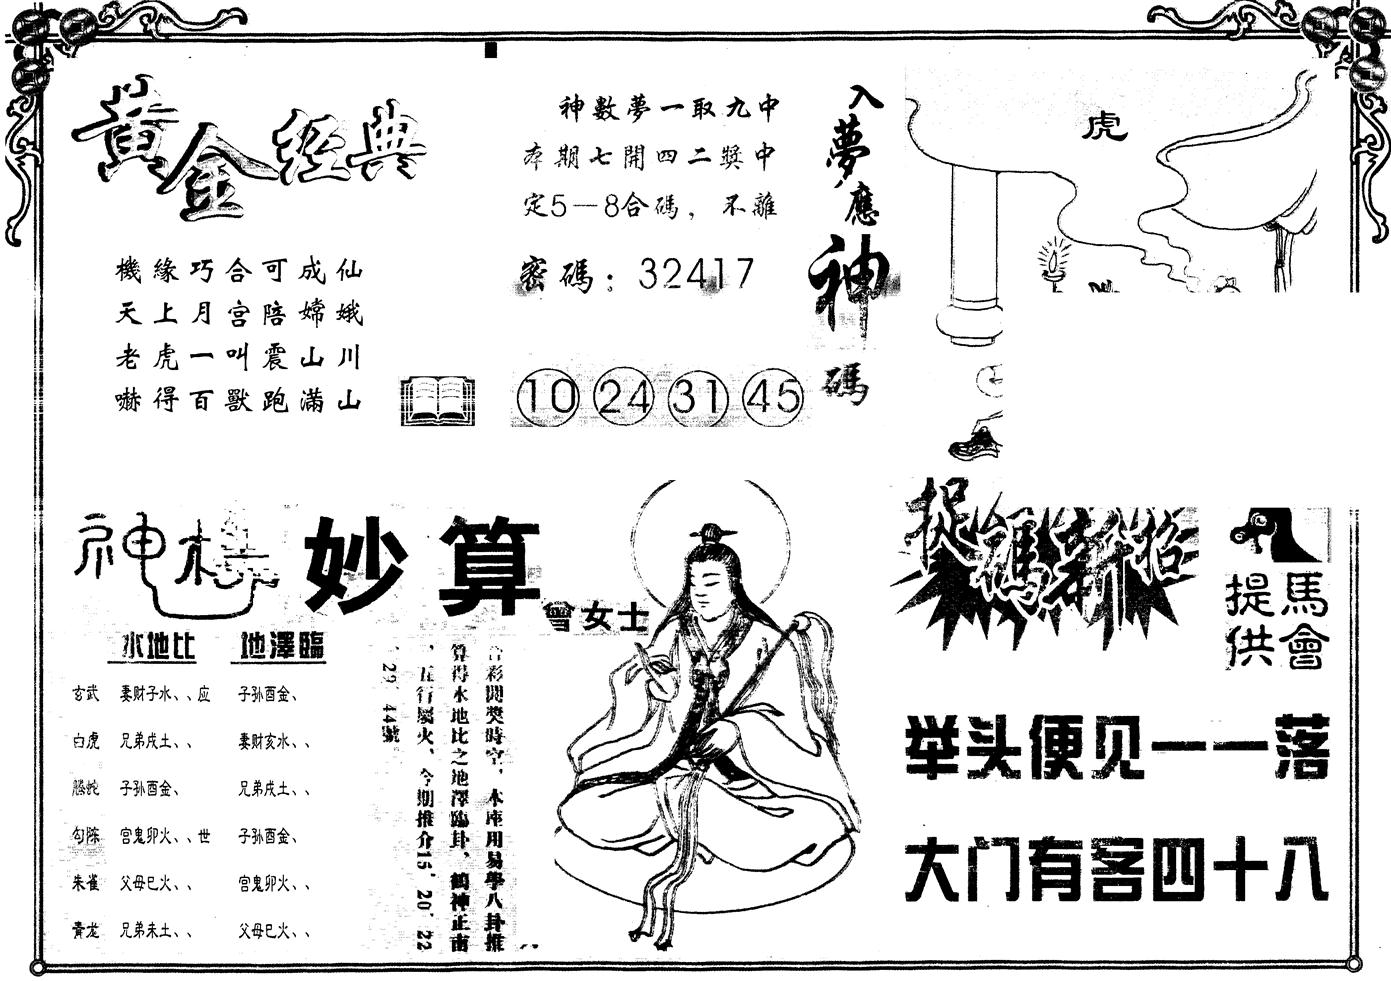 黄金經典
機緣巧合可成仙
天上月宫陪嫦娥
老虎一叫震山川
嚇得百獸跑滿山
神數夢一取九中
本期七開四二獎中
定5—8合碼，不離
密碼：32417
10 24 31 45
入夢應神碼
虎
神机妙算
曾女士
水地比 地澤臨
玄武 妻财子水、、应 子孙酉金、
白虎 兄弟戌土、、 妻财亥水、、
螣蛇 子孙酉金、 兄弟戌土、、
勾陈 官鬼卯火、、世 子孙酉金、
朱雀 父母巳火、、 官鬼卯火、、
青龙 兄弟未土、、 父母巳火、、
彩開獎時空，本座用易學八卦推
算得水地比之地澤臨卦，鶴神正南
，五行屬火，今期推介15、20、22
、29、44號
捉碼新招
馬會提供
举头便见一一落
大门有客四十八